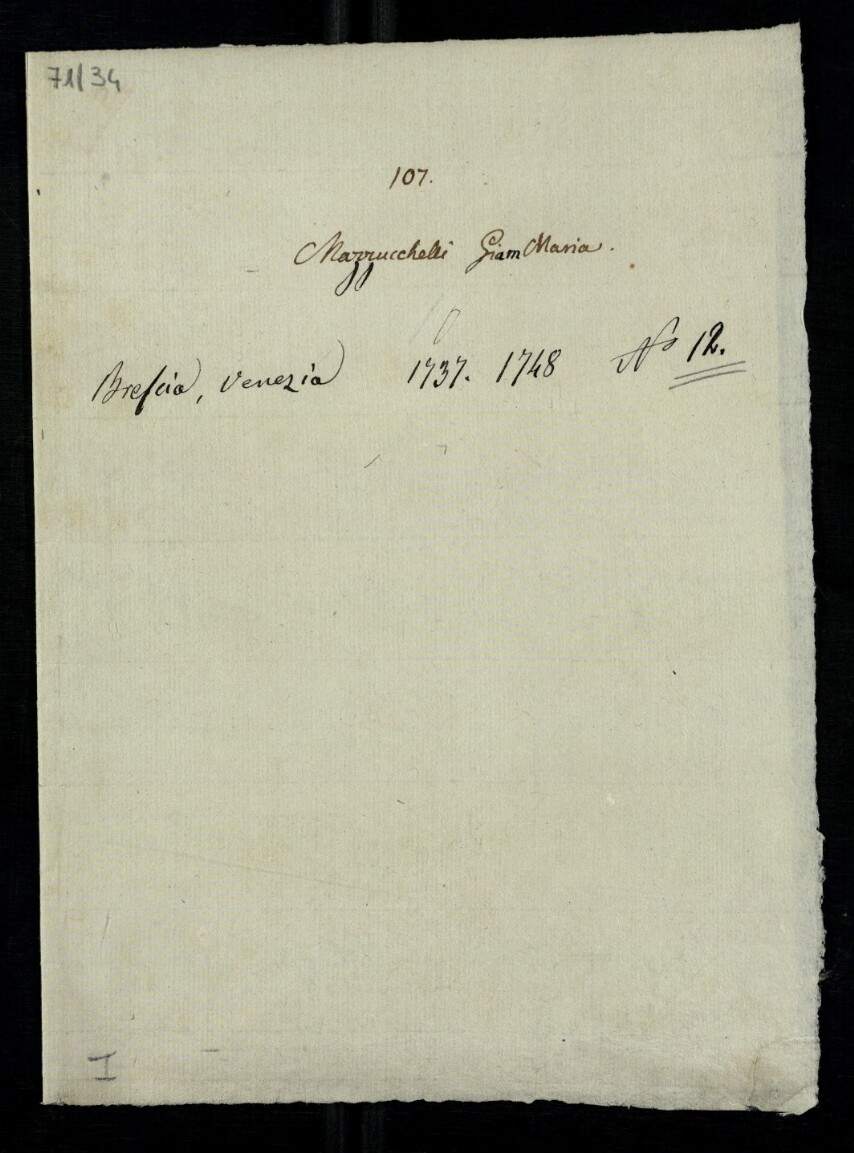 71/34
107.
Mazzucchelli Giam Maria.
Breſcia, Venezia 1737. 1748 No 12.
I